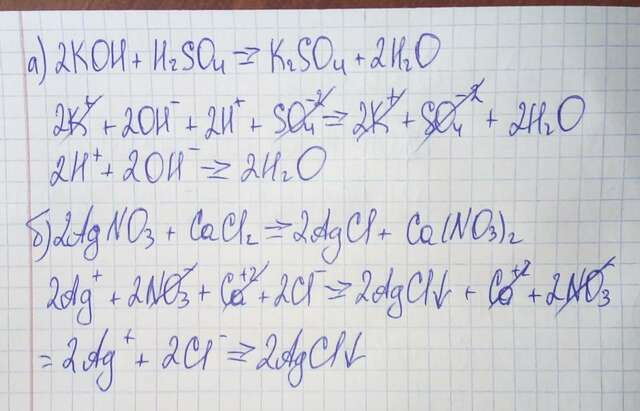 а) 2KOH + H₂SO₄ = K₂SO₄ + 2H₂O
2K⁺ + 2OH⁻ + 2H⁺ + SO₄⁻² = 2K⁺ + SO₄⁻² + 2H₂O
2H⁺ + 2OH⁻ = 2H₂O
б) 2AgNO₃ + CaCl₂ = 2AgCl + Ca(NO₃)₂
2Ag⁺ + 2NO₃⁻ + Ca⁺² + 2Cl⁻ = 2AgCl↓ + Ca⁺² + 2NO₃⁻
= 2Ag⁺ + 2Cl⁻ = 2AgCl↓